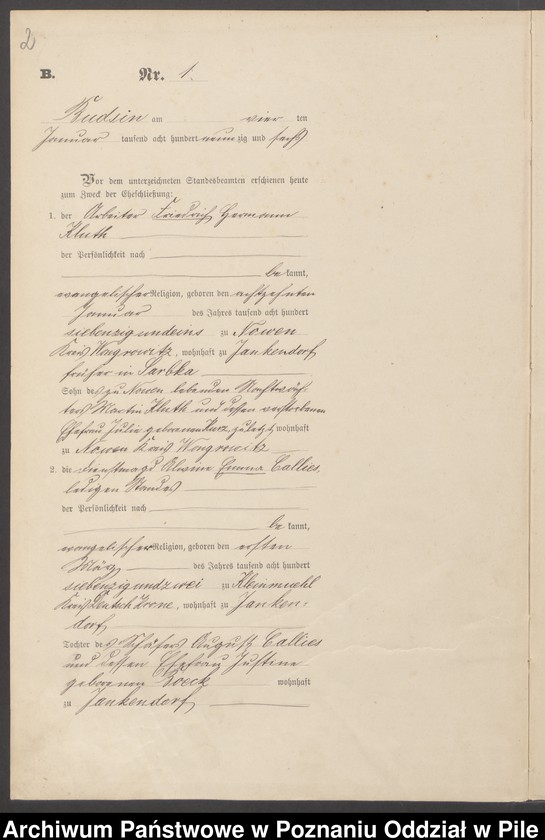 2
B. Nr. 1.
Budsin am vier ten
Januar tausend acht hundert neunzig und sechs
Vor dem unterzeichneten Standesbeamten erschienen heute
zum Zweck der Eheschließung:
1. der Arbeiter Friedrich Hermann
Kluth
der Persönlichkeit nach
be kannt,
evangelischer Religion, geboren den achtzehnten
Januar des Jahres tausend acht hundert
siebenzig und eins zu Nowen
Kreis Wongrowitz, wohnhaft zu Jankendorf
früher in Sarbka
Sohn des zu Nowen lebenden Nachtwäch-
ters Martin Kluth und dessen verstorbenen
Ehefrau Julie geborenen Kurz, zuletzt wohnhaft
zu Nowen Kreis Wongrowitz
2. die Dienstmagd Emma Callies,
ledigen Standes
der Persönlichkeit nach
be kannt,
evangelischer Religion, geboren den ersten
März des Jahres tausend acht hundert
siebenzig und zwei zu
Kreis Deutsch Krone, wohnhaft zu Janken-
dorf
Tochter des Schäfers August Callies
und dessen Ehefrau Justine
geborenen Boeck wohnhaft
zu Jankendorf
Archiwum Państwowe w Poznaniu Oddział w Pile